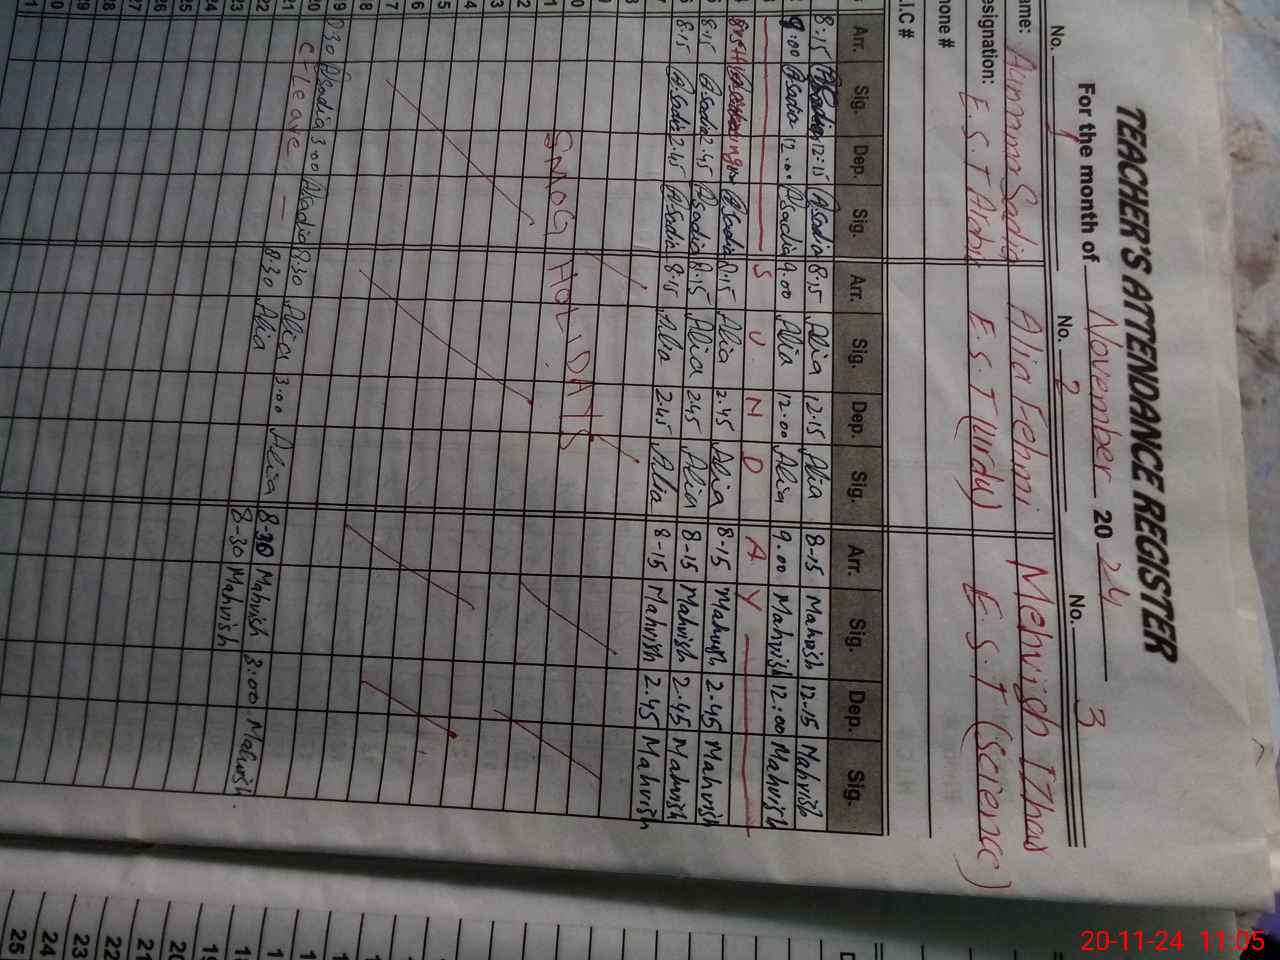 TEACHER'S ATTENDANCE REGISTER
For the month of November 20 24
No. 1 No. 2 No. 3
ame: Sadia Alia Fehmi Mehvish Izhar
esignation: E.S.T Arabic E.S.T (urdu) E.S.T (science)
hone #
.I.C #
Arr. Sig. Dep. Sig. Arr. Sig. Dep. Sig. Arr. Sig. Dep. Sig.
8:15 ASadia 12:15 ASadia 8:15 Alia 12:15 Alia 8-15 Mahvish 12.15 Mahvish
9:00 ASadia 12.00 ASadia 9.00 Alia 12.00 Alia 9.00 Mahvish 12:00 Mahvish
S U N D A Y
ASadia 8:15 Alia 2.45 Alia 8-15 Mahvish 2.45 Mahvish
8:15 ASadia 2.45 ASadia 8:15 Alia 2.45 Alia 8-15 Mahvish 2.45 Mahvish
8:15 ASadia 2.45 ASadia 8:15 Alia 2.45 Alia 8-15 Mahvish 2.45 Mahvish
7
8
9
10
SMOG HOLIDAYS
11
12
13
14
15
16
17
18
19 ASadia 3.00 ASadia 8:30 Alia 3:00 Alia 8-30 Mahvish 3:00 Mahvish
20 C-Leave 8:30 Alia 8-30 Mahvish
21
22
23
24
25
26
27
28
29
30
31
18
19
20
21
22
23
24
25
20-11-24 11:05